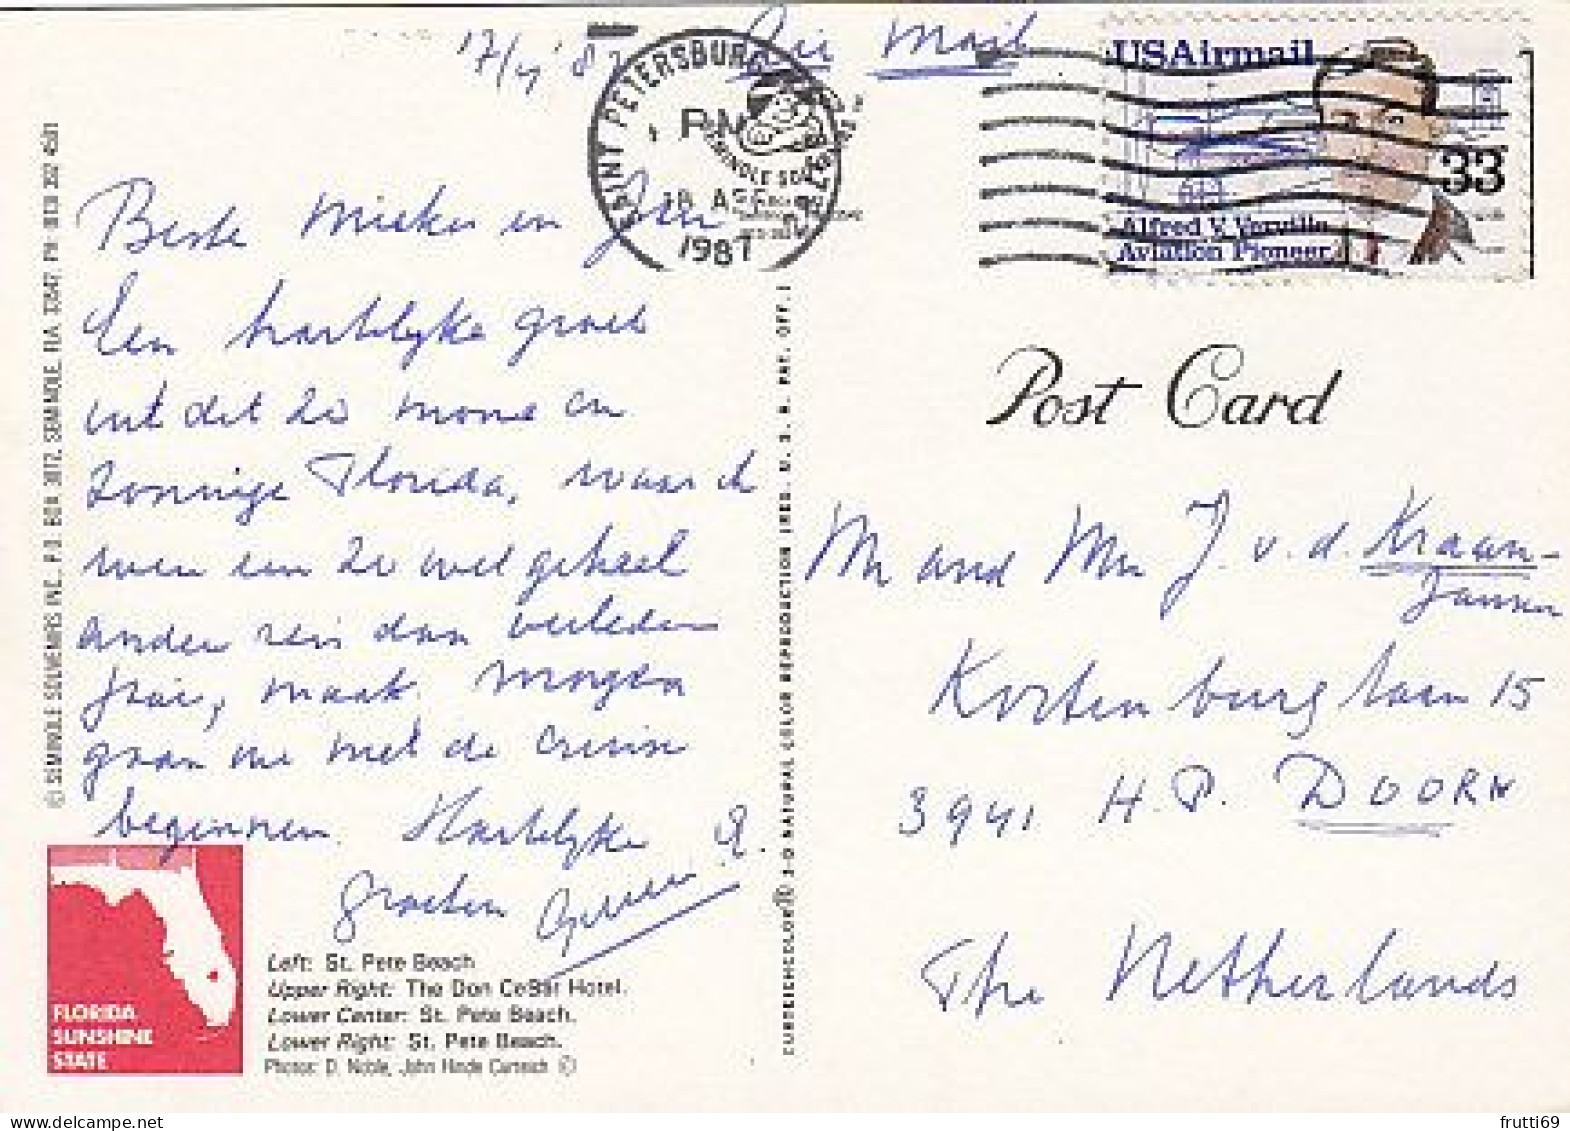 17/4 '87
Air Mail
SAINT PETERSBURG
PM
18 APR
1987
USAirmail
33
Alfred V. Verville
Aviation Pioneer
Beste Mieke en Jan
Een hartelijke groet
uit dit zo mooie en
zonnige Florida, waar ik
weer een zo wel geheel
ander reis dan verleden
jaar, maak. Morgen
gaan we met de cruise
beginnen. Hartelijke
groeten
Post Card
Mr and Mrs J. v. d. Kraan-
Jansen
Kortenburglaan 15
3941 H.P. DOORN
The Netherlands
© SEMINOLE SOUVENIRS INC. P.O. BOX 3012, SEMINOLE, FLA. 33542
CURTEICHCOLOR® 3-D NATURAL COLOR REPRODUCTION (REG. U. S. A. PAT. OFF.)
FLORIDA
SUNSHINE
STATE
Left: St. Pete Beach
Upper Right: The Don CeSar Hotel.
Lower Center: St. Pete Beach.
Lower Right: St. Pete Beach.
Photos: D. Noble, John Hinde Curteich ©
frutti69